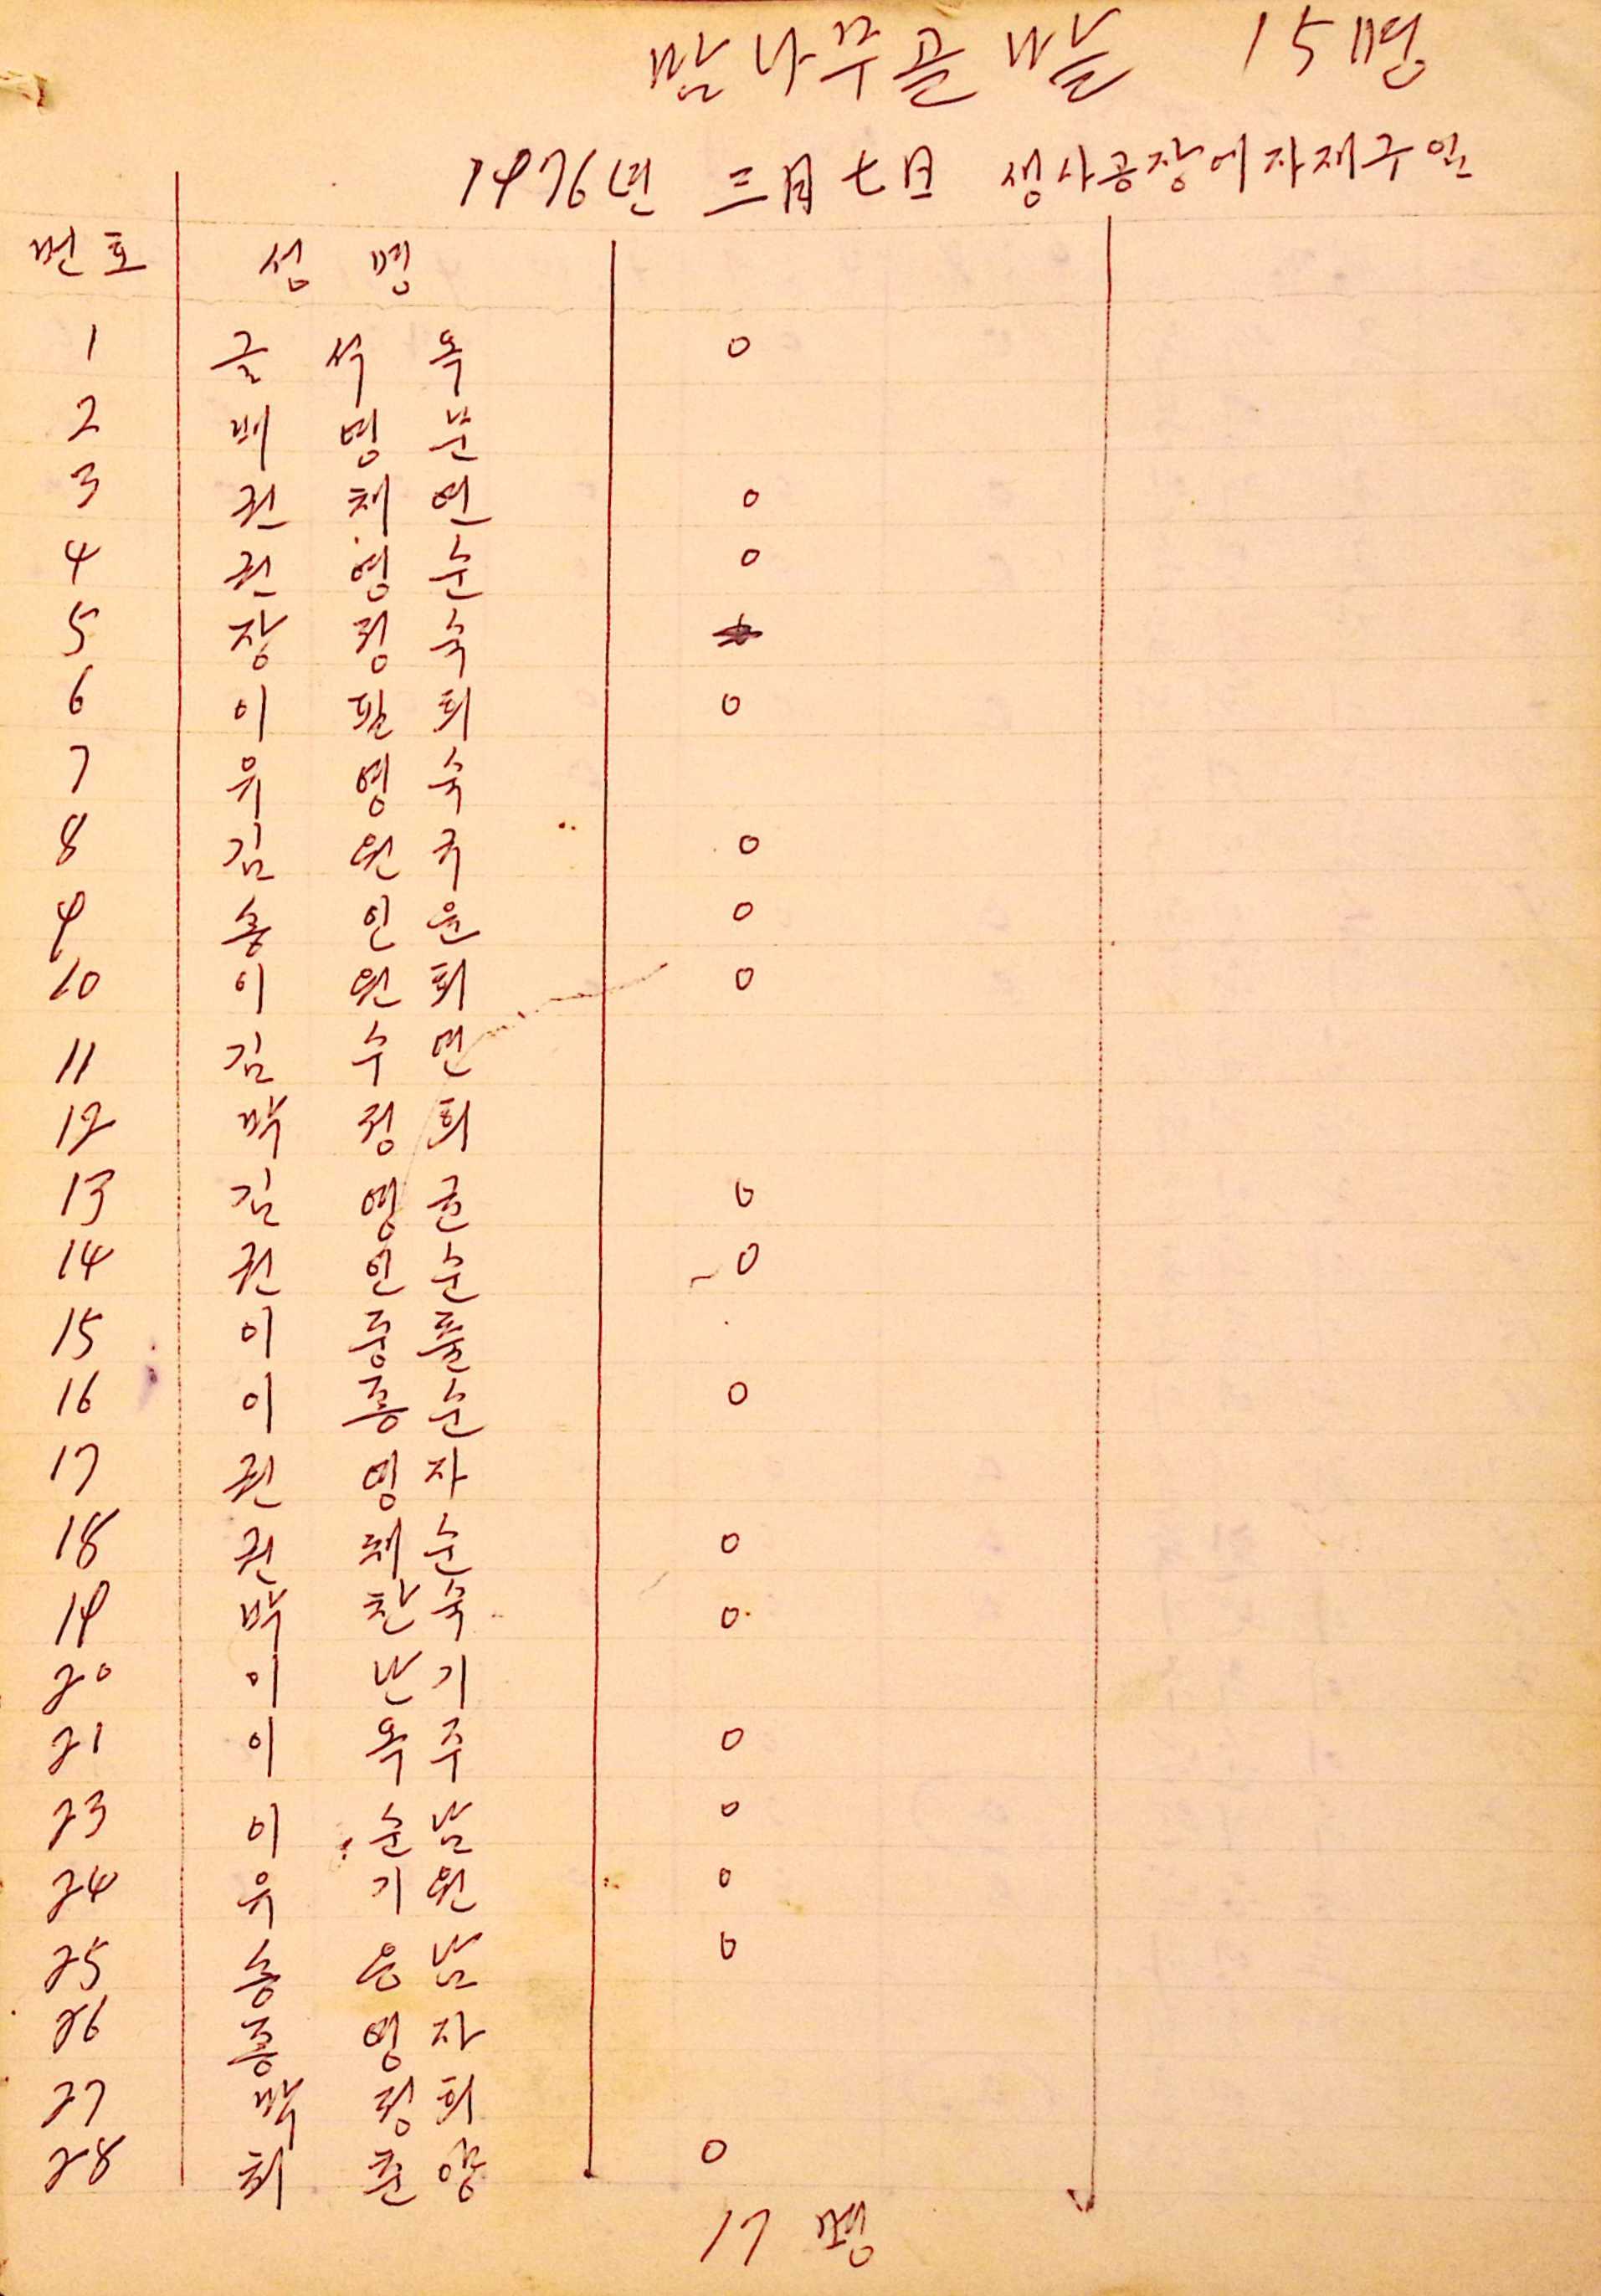 밤나무골 날 15명
1976년 三月七日 생사공장에자재구입
번호 성명
1 금석옥 o
2 백영분
3 권채연 o
4 권영순 o
5 장정숙
6 이필희 o
7 유영숙
8 김원국 o
9 송인윤 o
10 이원희 o
11 김수연
12 박정희
13 김영근 o
14 권언순 o
15 이
16 이종순 o
17 권영자
18 권채순 o
19 박찬숙 o
20 이난기
21 이옥주 o
23 이순남 o
24 유기원 o
25 송은남 o
26 홍영자
27 박정희
28 최춘양 o
17명